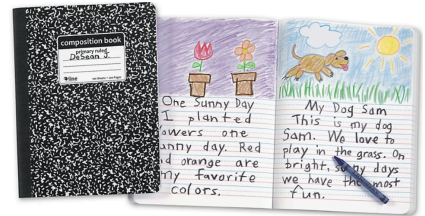 composition book
primary ruled
DeSean J.
One Sunny Day
I planted
owers one
unny day. Red
d orange are
my favorite
colors.
My Dog Sam
This is my dog
Sam. We love to
play in the grass. On
bright, sunny days
we have the most
fun.